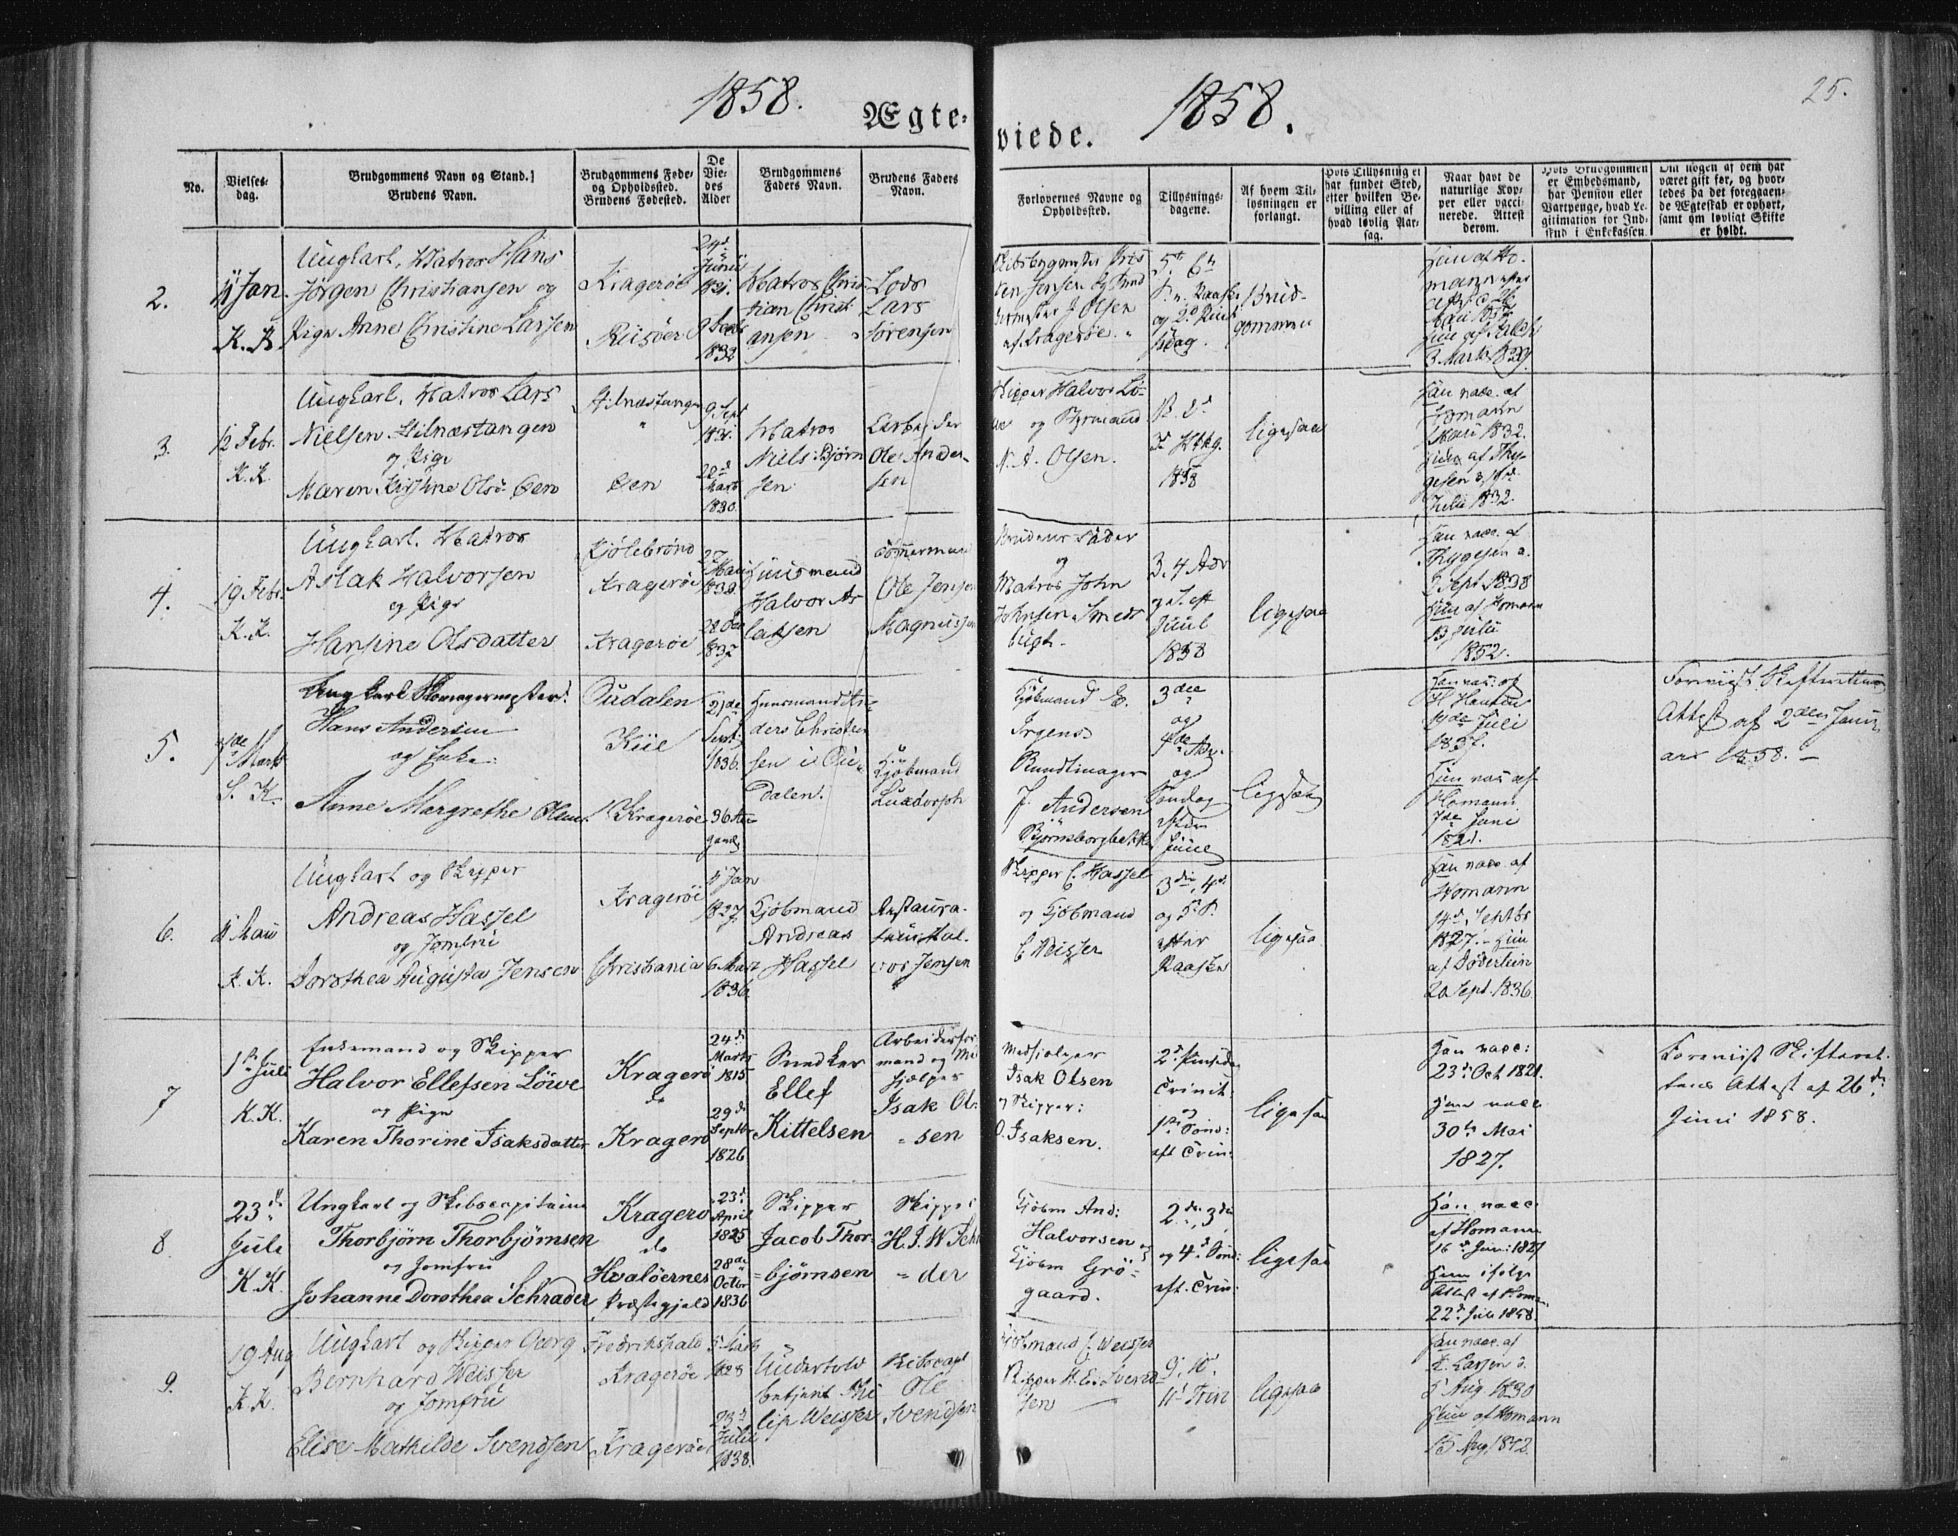 1858.
Ægte-
No.
Vielses-
dag.
Brudgommens Navn og Stand.
Brudens Navn.
Brudgommens Føde-
og Opholdssted.
Brudens Fødested.
De
Vie-
des
Alder
Brudgommens
Faders Navn.
Brudens Faders
Navn.
2.
11 Jan.
K. K.
Ungkarl, Matros Hans
Jörgen Christiansen og
Pige Anne Christine Larsen
Krageröe
Riisöer
24d
Junii
1831.
9 Sept
1832
Matros Chris-
tian Christ
ansen
Lods
Lars
Sörensen
3.
12 Febr.
K. K.
Ungkarl, Matros Lars
Nielsen Stilnæstangen
og Pige
Maren Kirstine Olsd. Öen
Stilnæstangen
Öen
9 Sept
1831.
22d
Marts
1830.
Matros
Niels Björn
sen
Arbeider
Ole Ander-
sen
4.
19 Febr.
K. K.
Ungkarl, Matros
Aslak Halvorsen
og Pige
Hansine Olsdatter
Kjölebrönd
Krageröe
Krageröe
27
Mai
1832.
28 Dec
1837
Huusmand
Halvor As
laksen
Tömmermand
Ole Jensen
Magnussen
5.
7de
Marts
S. K.
Ungkarl Skomagermester
Hans Andersen
og Enke
Anne Margrethe Olsen
Sudalen
Kiil
Krageröe
21de
Sept
1836.
36 Aar
gamle
Huusmand An-
ders Christen
sen i Su-
dalen.
Kjöbmand
Luxdorph
6.
11 Mai
K. K.
Ungkarl og Skipper
Andreas Hassel
og Jomfru
Dorothea Augusta Jensen
Krageröe
Christiania
11 Jan
1827.
6 Mart
1836.
Kjöbmand
Andreas
Hassel
Restaura-
teur Hal-
vor Jensen
7
1ste Juli
K. K.
Enkemand og Skipper
Halvor Ellefsen Löwe
og Pige
Karen Thorine Isaksdatter
Kragerö
do
Kragerö
24de
Marts
1815
29de
Septbr
1826
Snedker
Ellef
Kittelsen
Arbeidsfor-
mand og Med
hjælper
Isak Ol-
sen
8.
23d
Juli
K. K.
Ungkarl og Skibscapitaine
Thorbjørn Thorbjørnsen
og Jomfru
Johanne Dorothea Schrader
Kragerö
do
Hvalöernes
Præstegjeld
23d
April
1825
28de
Octbr
1836
Skipper
Jacob Thor-
bjørnsen
Skipper
H. J. W. Schra
der
9.
19 Aug
K. K.
Ungkarl og Skipper Georg
Bernhard Weisser
og Jomfru
Elise Mathilde Svendsen
Fredrikshald
Krageröe
Krageröe
1828
23d
Julii
1838.
Undertold
betjent Phi
lip Weisser
Skibscapt
Ole
Svendsen
1858.
25.
viede.
Forlovernes Navne og
Opholdssted.
Tillysnings-
dagene.
Af hvem Til-
lysningen er
forlangt.
Hvis Tillysning ei
har fundet Sted,
efter hvilken Be-
villing eller af
hvad lovlig Aar-
sag.
Naar havt de
naturlige Kop-
per eller vacci-
nerede. Attest
derom.
Hvis Brudgommen
er Embedsmand,
har Pension eller
Vartpenge, hvad Le-
gitimation for Ind-
skud i Enkekassen.
Om nogen af dem har
været gift før, og hvor-
ledes da det foregaaen-
de Ægteskab er ophørt,
samt om lovligt Skifte
er holdt.
Skibsbygmester Chris
ten Jensen og
J. Olsen
af Krageröe.
5te 6te
og 2d
dag.
Brud-
gommen
Skipper Halvor Lö-
we og Styrmand
N. A. Olsen.
1858
ligesaa
Han vacc. af
Homann
1832.
af Thy-
gesen
Julii 1832.
Brudens Fader
og
Matros John
Johnsen Smeds
bugt.
3. 4 Adv
og S. eft
Juul
1858
ligesaa
Han vacc. af
Thygesen d.
2 Sept. 1838
Hun af Homann
13 Julii
1852.
Kjöbmand E.
Irgens
Buntmager
J. Andersen
Björnsborgbekken
3die
og
4de Adv.
og
Söndag
efter
Juul
ligesaa
Han vac. af
H. Hansen
Juli
1837.
Hun vac. af
Homann
7de Juni
1821.
Foreviist Skifterettens
Attest af 2den Janu-
ar 1858.
Skipper C. Hassel
og Kjöbmand
C Weisser
3die, 4d.
og 5. S.
efter
Paaske
ligesaa
Han vacc. af
Homann
14d Septbr
1827. Hun
af Döderlein
20 Sept. 1836
Medhjelper
Isak Olsen
og Skipper:
O. Isaksen.
2d Pinsedag
Trinit:
og
1ste Sönd:
eft Trin:
ligesaa
Han vacc:
23de Oct 1821.
Hun vacc
30te Mai
1827.
Foreviist Skifteret-
tens Attest af 26de
Juni 1858.
Kjöbm And:
Halvorsen og
Kjöbm Grö-
gaard.
2de, 3die
og 4de Sönd:
eft. Trin:
ligesaa
Han vacc
af Homann
16d Juni 1827
Hun ifölge
Attest af Homan
22d Juli 1858.
Kjöbmand C. Weisser
Skipper H. E. Svend
sen
9. 10.
11d Trin
ligesaa
Han vacc. af
L. Larsen d.
5 Aug. 1830
Hun af Homann
15 Aug. 1842.